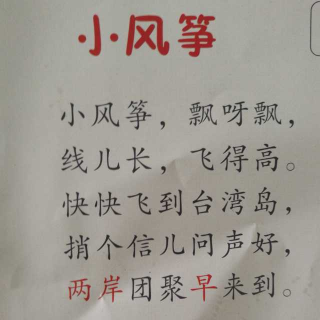 小风筝
小风筝，飘呀飘，
线儿长，飞得高。
快快飞到台湾岛，
捎个信儿问声好，
两岸团聚早来到。